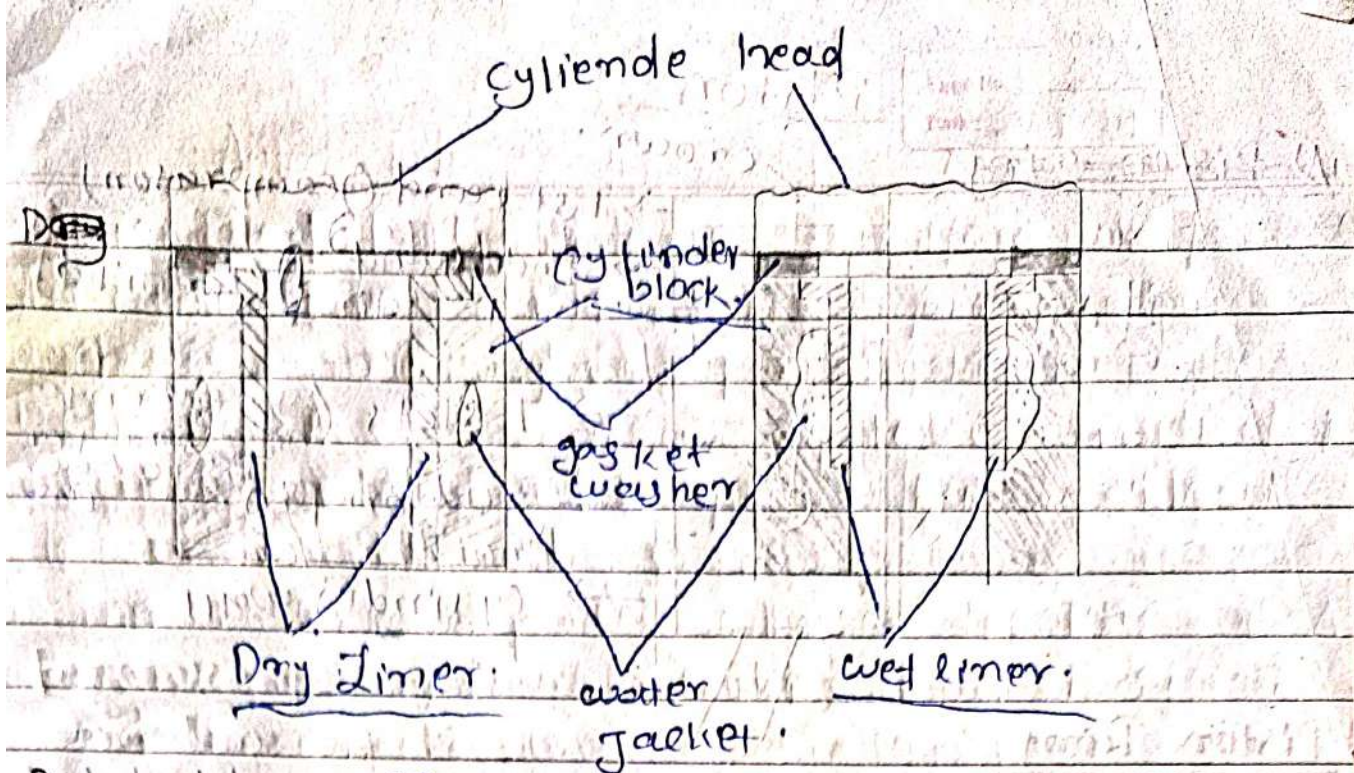 cyliende head
cylinder
block.
gasket
washer
Dry Liner.
water
Jacket.
wet liner.